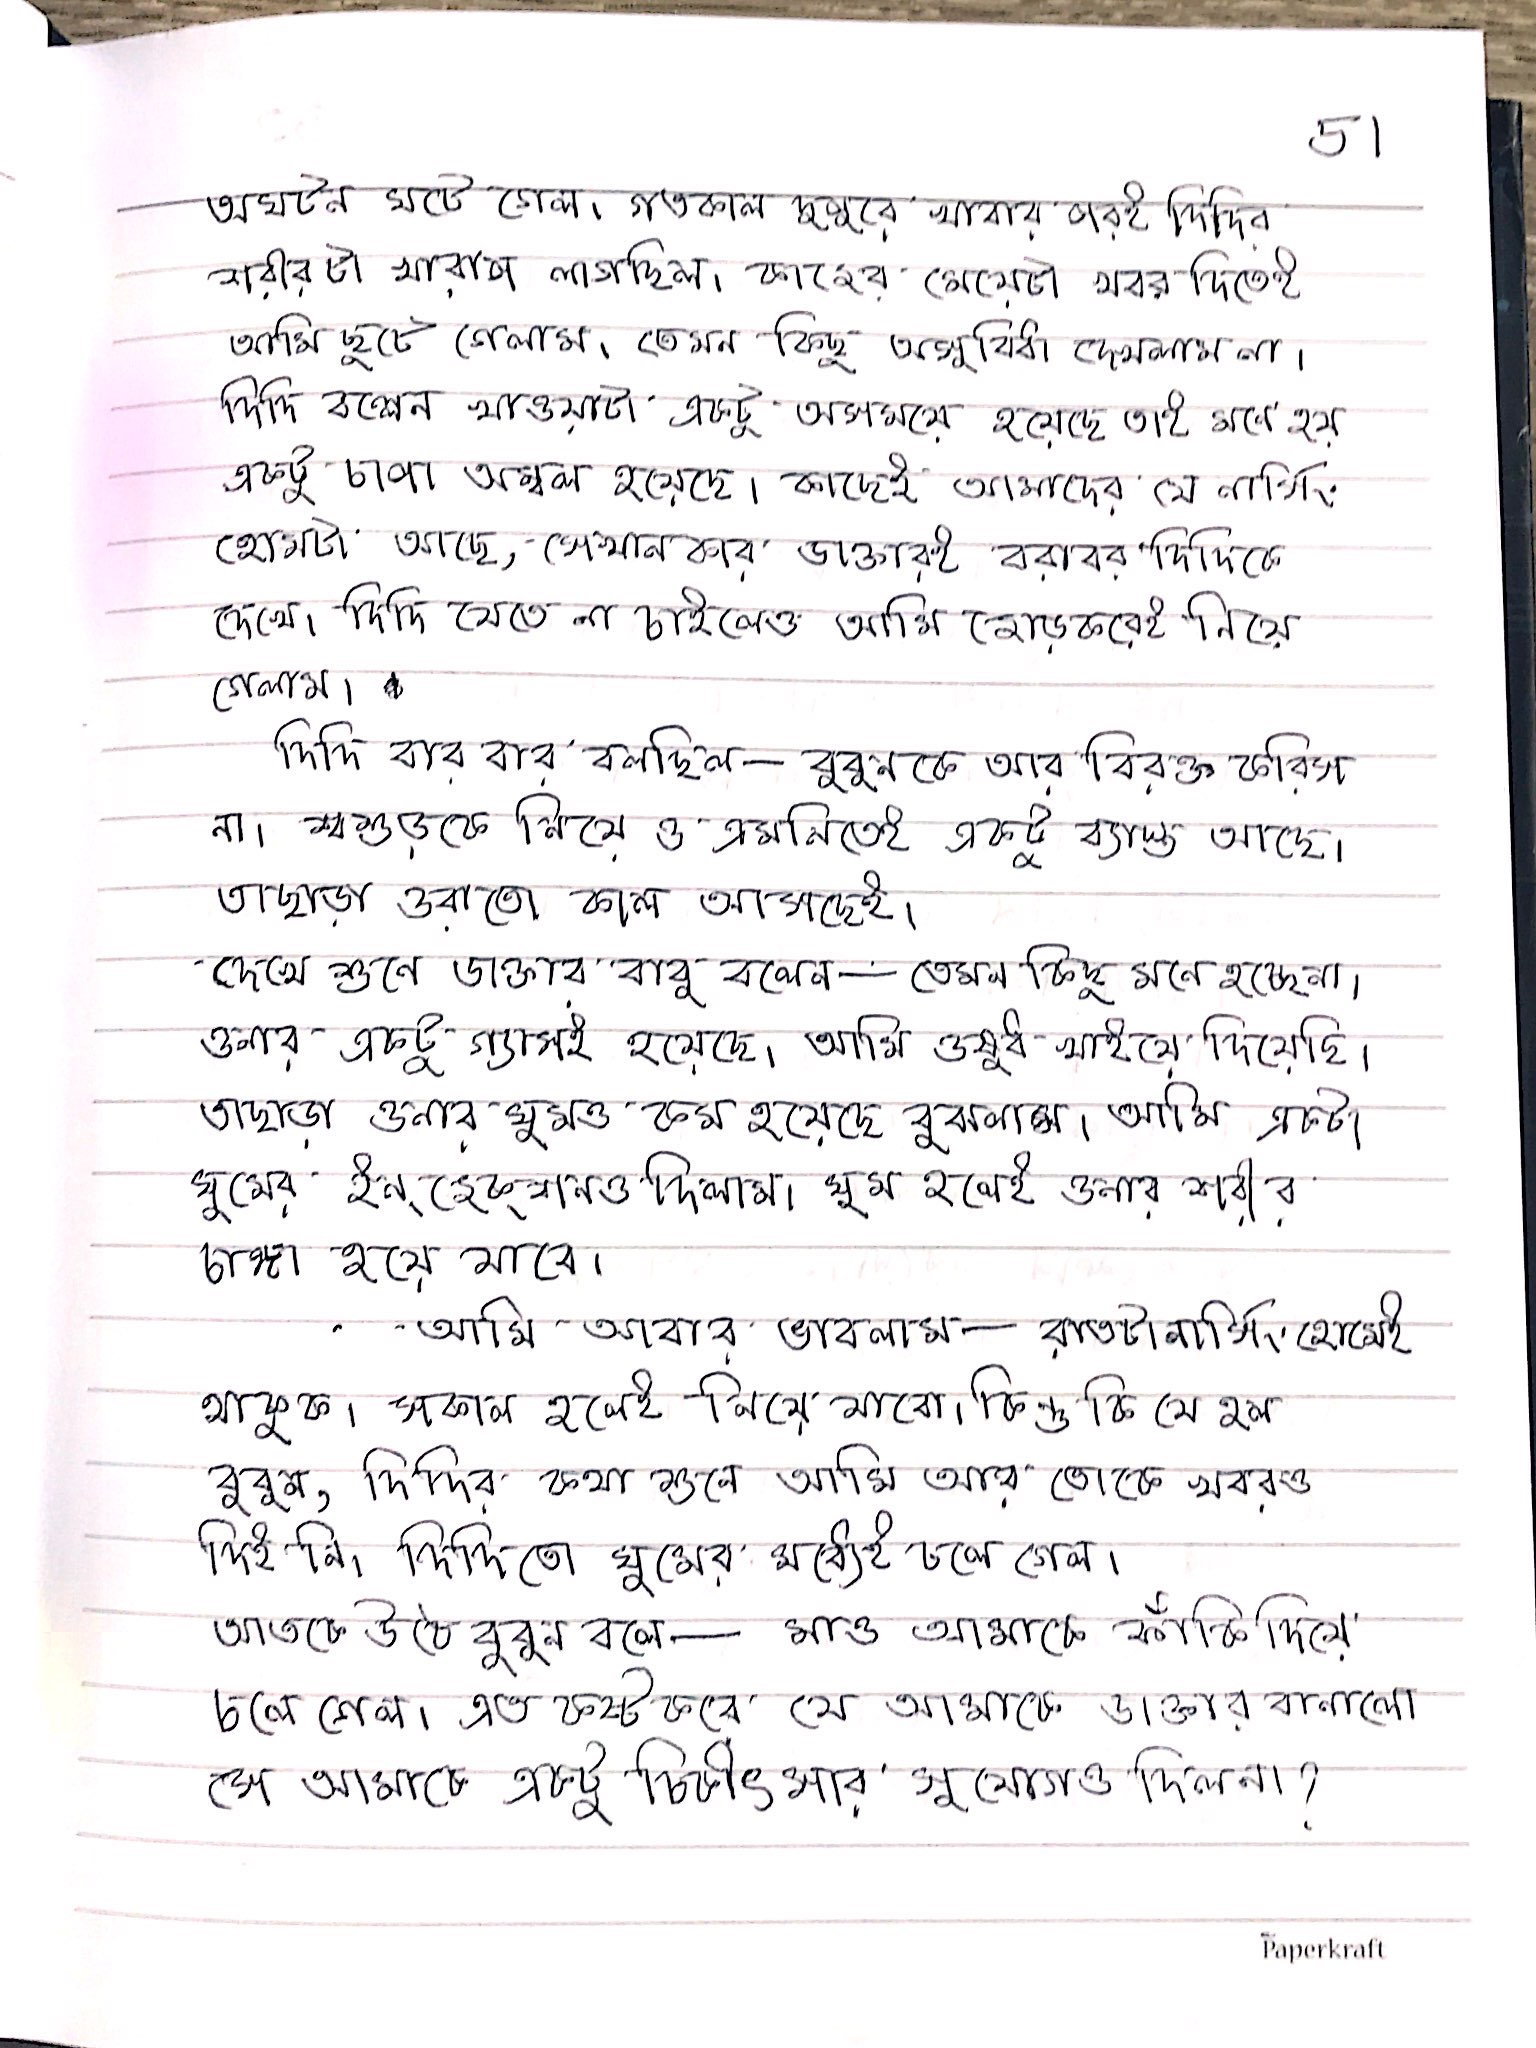 51
অঘটন ঘটে গেল। গতকাল দুপুরে খাবার পরই দিদির
শরীরটা খারাপ লাগছিল। কাজের মেয়েটা খবর দিতেই
আমি ছুটে গেলাম। তেমন কিছু অসুবিধা দেখলাম না।
দিদি বল্লেন খাওয়াটা একটু অসময়ে হয়েছে তাই মনে হয়
একটু চাপা অম্বল হয়েছে। কাছেই আমাদের যে নার্সিং
হোমটা আছে, সেখানকার ডাক্তারই বরাবর দিদিকে
দেখে। দিদি যেতে না চাইলেও আমি জোড়করেই নিয়ে
গেলাম।
দিদি বার বার বলছিল— বুবুনকে আর বিরক্ত করিস
না। শ্বশুড়কে নিয়ে ও এমনিতেই একটু ব্যাস্ত আছে।
তাছাড়া ওরাতো কাল আসছেই।
দেখে শুনে ডাক্তার বাবু বলেন— তেমন কিছু মনে হচ্ছেনা।
ওনার একটু গ্যাসই হয়েছে। আমি ওষুধ খাইয়ে দিয়েছি।
তাছাড়া ওনার ঘুমও কম হয়েছে বুঝলাম। আমি একটা
ঘুমের ইন্‌জেক্‌শানও দিলাম। ঘুম হলেই ওনার শরীর
চাঙ্গা হয়ে যাবে।
আমি আবার ভাবলাম— রাতটা নার্সিং হোমেই
থাকুক। সকাল হলেই নিয়ে যাবো। কিন্তু কি যে হল
বুবুন, দিদির কথা শুনে আমি আর তোকে খবরও
দিই নি। দিদিতো ঘুমের মধ্যেই চলে গেল।
আতকে উঠে বুবুন বলে— মাও আমাকে ফাঁকি দিয়ে
চলে গেল। এত কষ্ট করে যে আমাকে ডাক্তার বানালো
সে আমাকে একটু চিকীৎসার সুযোগও দিলনা?
Paperkraft